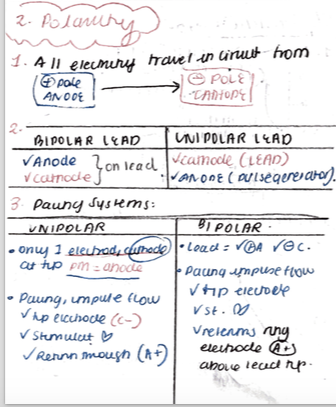 2. Polarity
1. All electricity travel in circuit from
⊕ pole → ⊖ POLE
ANODE CATHODE
2.
BIPOLAR LEAD UNIPOLAR LEAD
✓Anode ✓cathode (LEAD)
✓cathode } on lead. ✓ANODE (pulse generator).
3. Pacing Systems:
UNIPOLAR BIPOLAR
• only 1 electrod, cathode
at tip PM = anode
• Pacing, impulse flow
✓tip electrode (C-)
✓Stimulat ♡
✓Return through (A+)
• Lead = ✓⊕A ✓⊖C.
• Pacing impulse flow
✓tip electrode
✓st. ♡
✓returns ring
electrode (A+)
above lead tip.